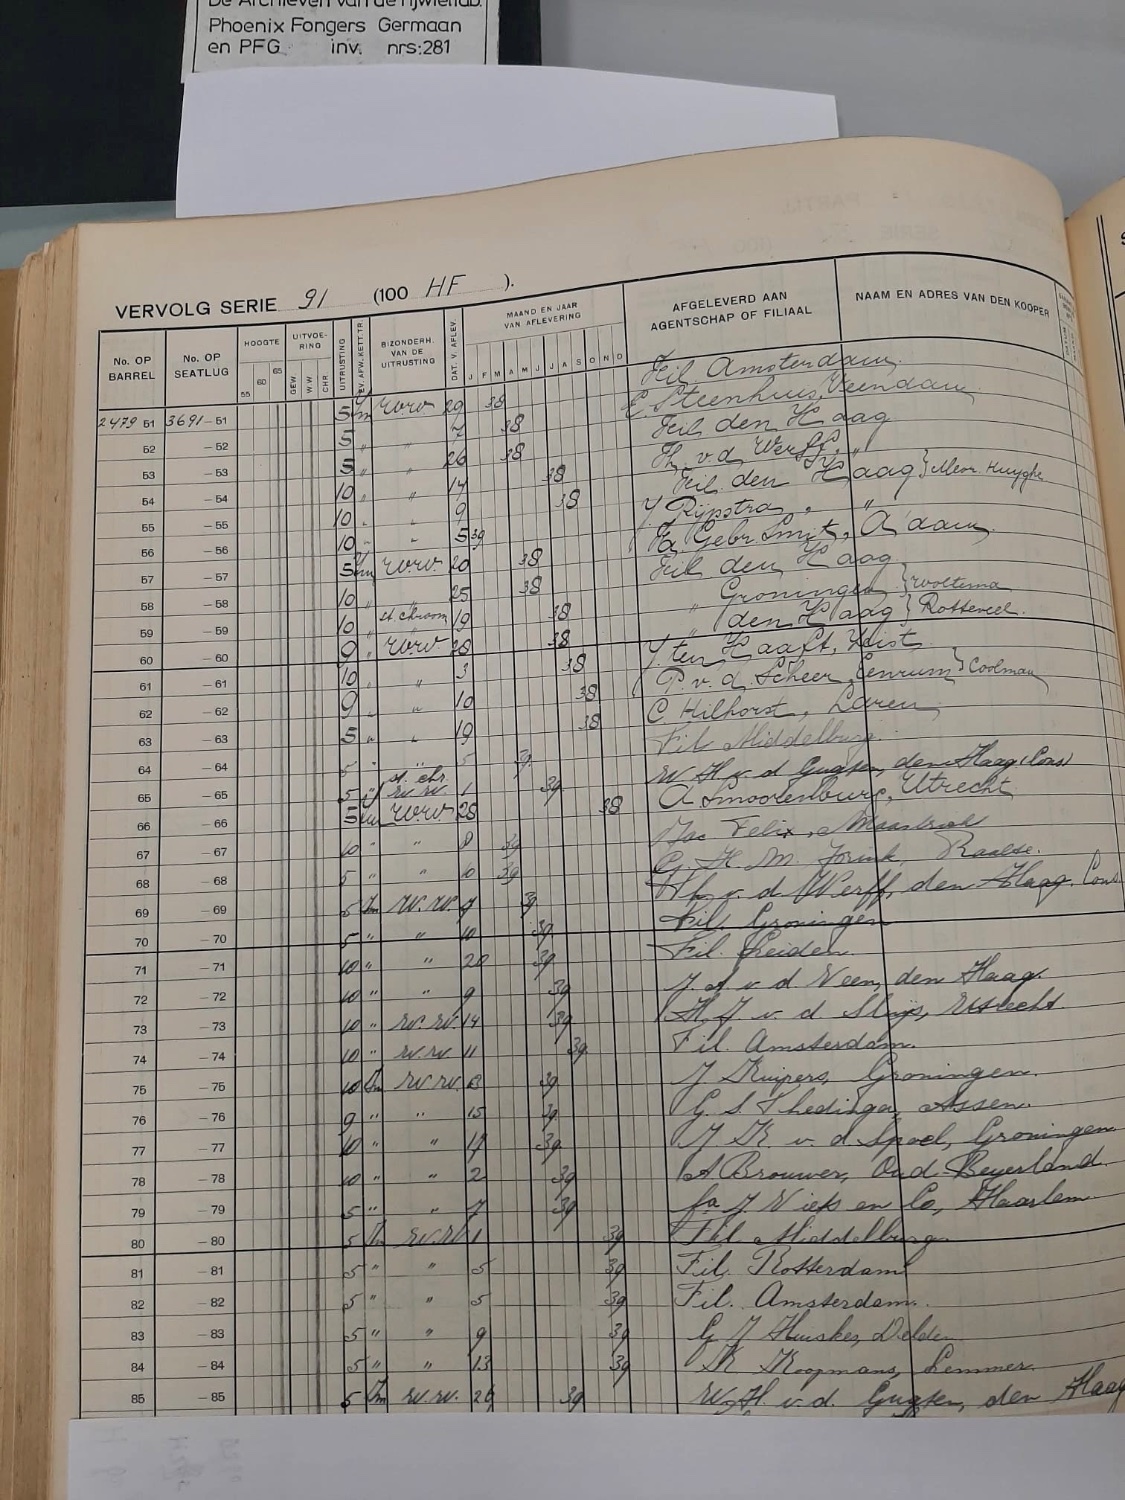 De Archieven van de rijwielfab.
Phoenix Fongers Germaan
en PFG inv. nrs:281
VERVOLG SERIE 91 (100 HF ).
No. OP BARREL No. OP SEATLUG HOOGTE 55 60 65 UITVOERING GEW. WW CHR. UITRUSTING BIZONDERH. VAN DE UITRUSTING DAT. V. AFLEV. MAAND EN JAAR VAN AFLEVERING J F M A M J J A S O N D AFGELEVERD AAN AGENTSCHAP OF FILIAAL NAAM EN ADRES VAN DEN KOOPER
2479 51 3691-51 5 rwrw 29 38 Fil Amsterdam
52 -52 5 " " 7 38 E. Steenhuis, Veendam
53 -53 5 " " 26 38 Fil den Haag
54 -54 10 " " 14 38 Th. v.d. Werff, "
55 -55 10 " " 9 38 Fil. den Haag } Mevr. Kuyghe
56 -56 10 " " 5 39 J. Rijpstra " "
57 -57 5 rwrw. 20 38 Fa Gebr. Smit, A'dam
58 -58 10 " " 25 38 Fil den Haag
59 -59 10 " st. chroom 19 38 " Groningen } Woltema
60 -60 9 " rwrw 28 38 " den Haag } Rotteveel.
61 -61 10 " " 3 38 J. ten Haaft, Zeist
62 -62 9 " " 10 38 P. v. d. Scheer, Eenrum } Coolman
63 -63 5 " " 19 38 C Hilhorst, Laren
64 -64 5 " " 5 39 Fil Middelburg
65 -65 5 " st. chr. rw rw. 1 39 W H v d Gugten, den Haag (Cons)
66 -66 5 rwrw 28 38 A Smoorenburg, Utrecht
67 -67 10 " " 8 39 Jac Felix, Maastricht
68 -68 5 " " 10 39 G. H. M. Jorink, Raalte.
69 -69 5 rw. rw. 7 39 Th v. d Werff, den Haag. Cons
70 -70 5 " " 10 39 Fil. Groningen
71 -71 10 " " 20 39 Fil. Leiden.
72 -72 10 " " 9 39 J. A v. d Veen, den Haag.
73 -73 10 " rw. rw. 14 39 H. J v. d Sluijs, Utrecht
74 -74 10 " rw. rw 11 39 Fil. Amsterdam.
75 -75 10 rw rw. 13 39 J. Kuipers, Groningen.
76 -76 9 " " 15 39 G. S. Thedinga, Assen.
77 -77 10 " " 17 39 J K v. d Spoel, Groningen
78 -78 10 " " 2 39 A Brouwer, Oud-Beyerland.
79 -79 5 " " 7 39 fa J. en Co, Haarlem.
80 -80 5 rw.rw. 1 39 Fil Middelburg.
81 -81 5 " " 5 39 Fil. Rotterdam
82 -82 5 " " 5 39 Fil. Amsterdam.
83 -83 5 " " 9 39 G J Huiskes, Delden
84 -84 5 " " 13 39 K Koopmans, Lemmer.
85 -85 5 rw. rw. 26 39 W. H. v. d. Gugten, den Haag